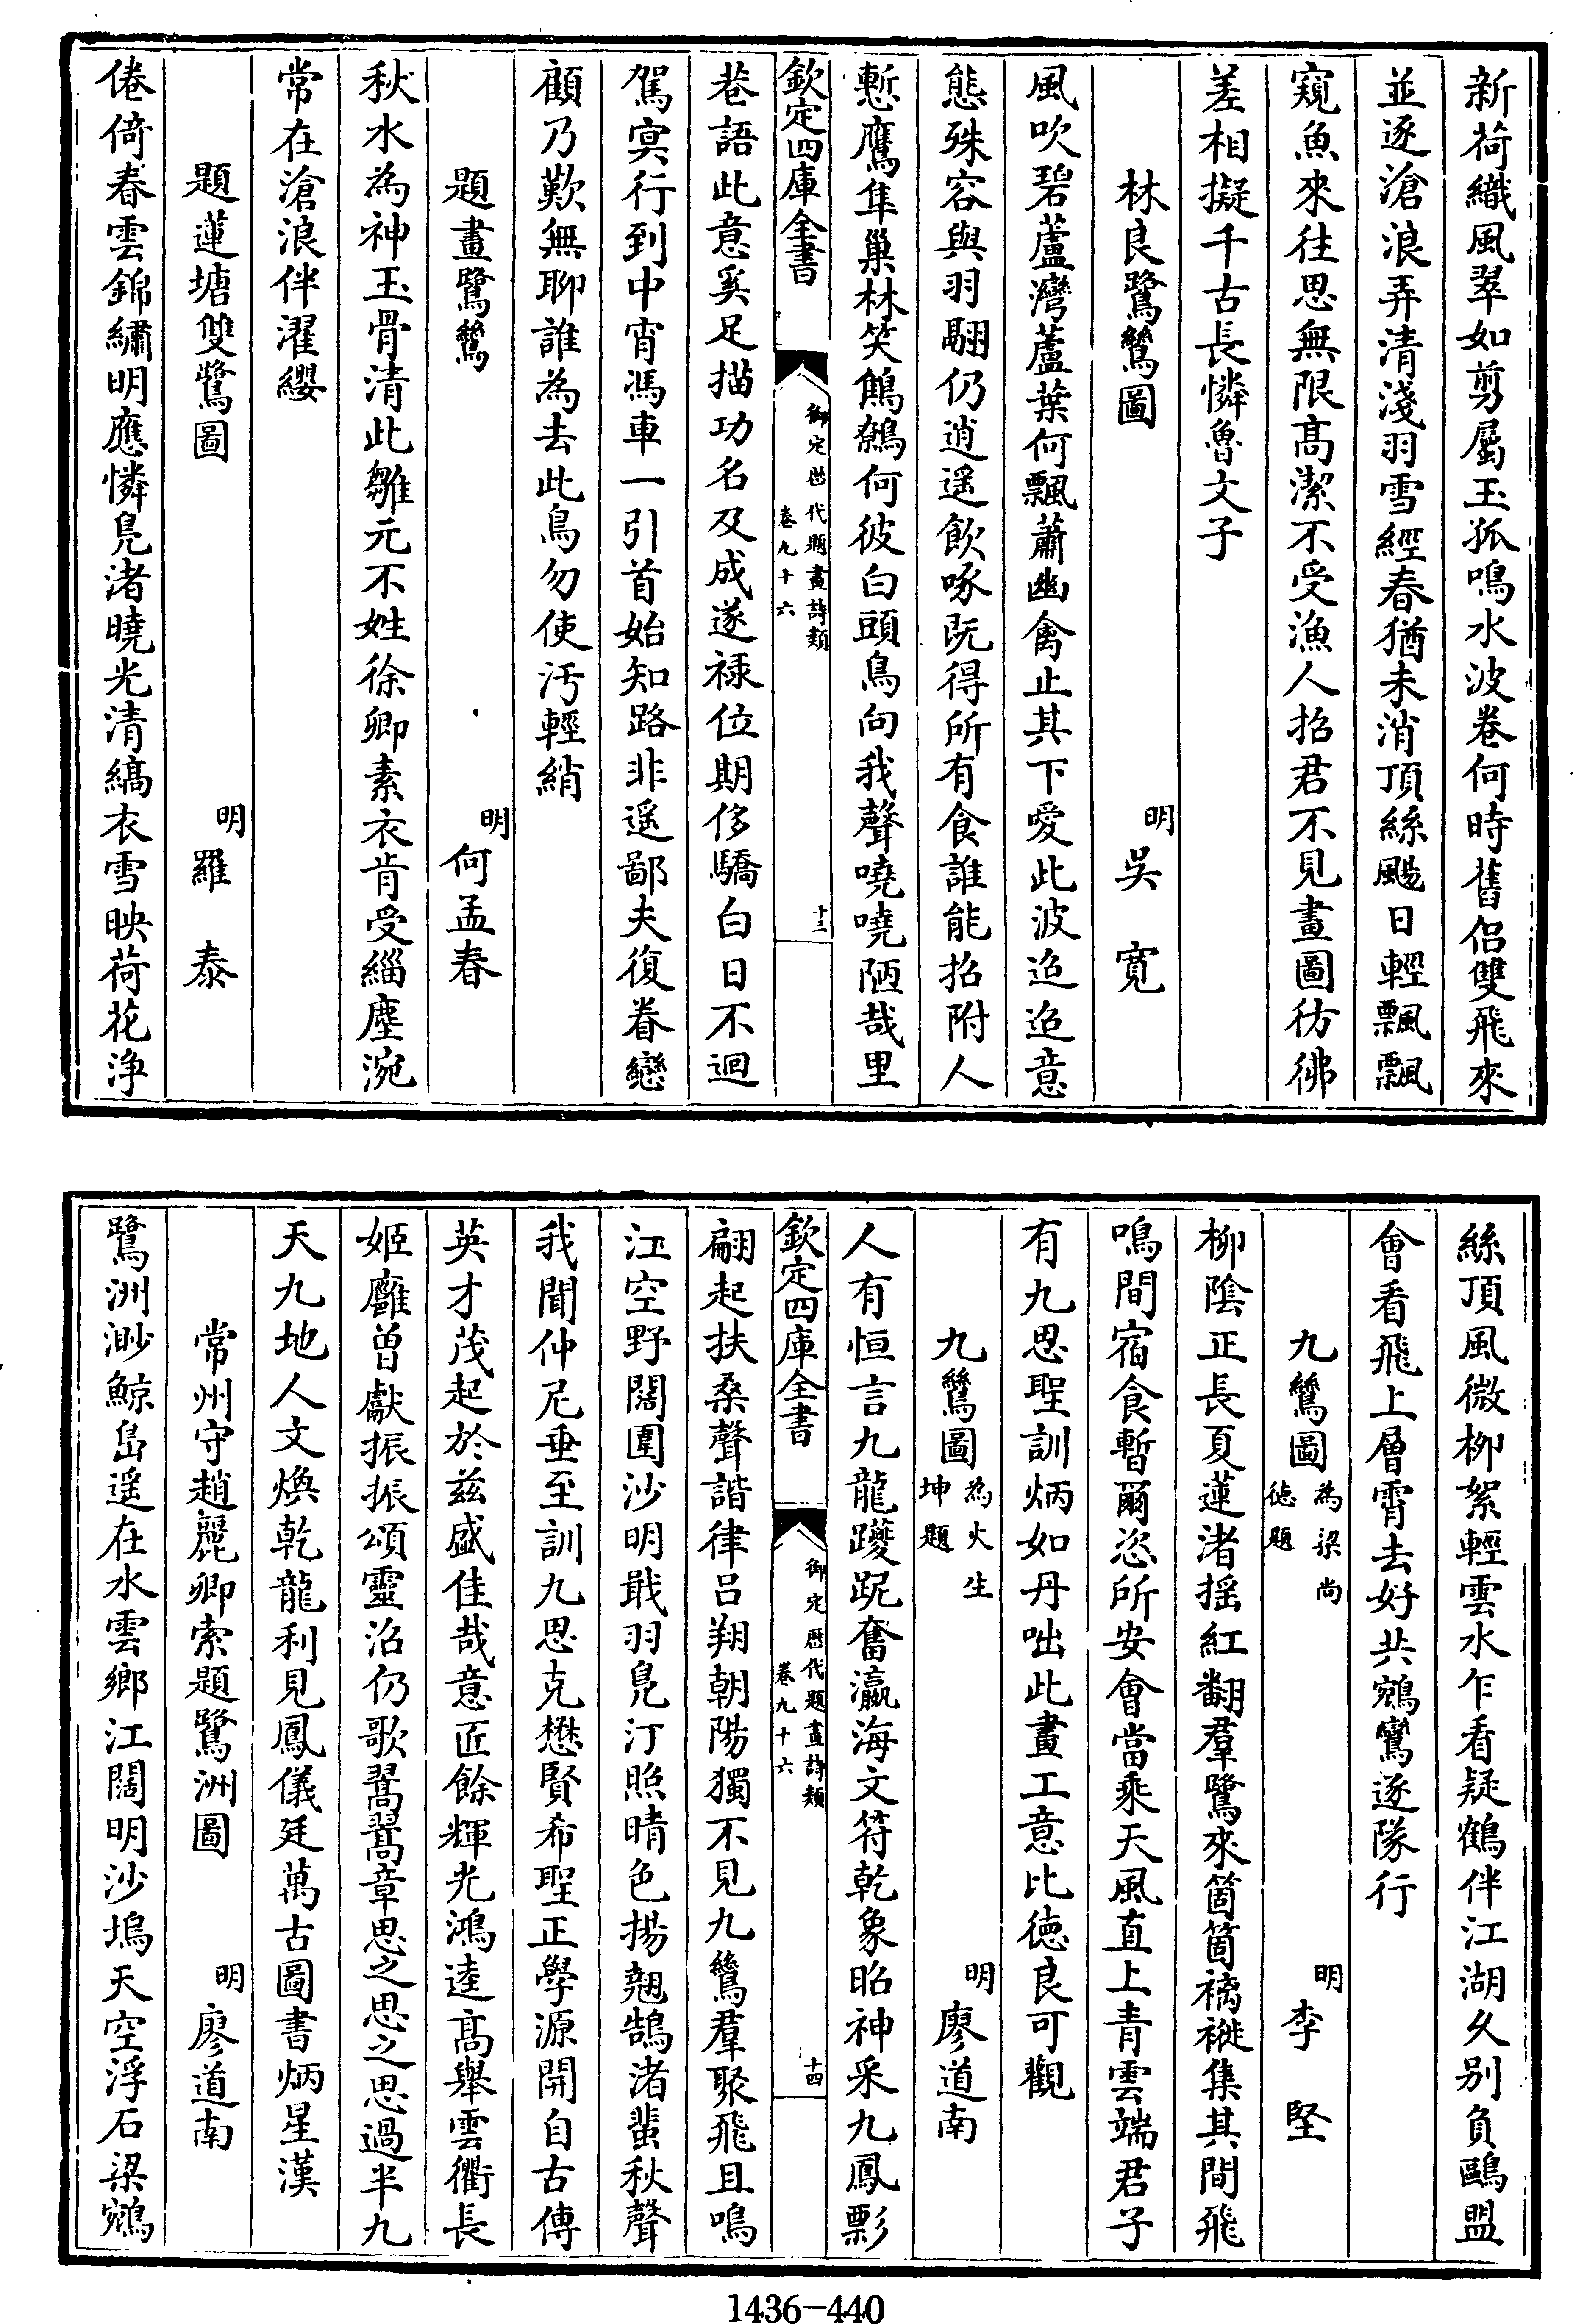 新荷織風翠如剪屬玉孤鳴水波卷何時舊侣雙飛來
並逐滄浪弄清淺羽雪經春猶未消頂絲颺日輕飄飄
窺魚來往思無限髙潔不受漁人招君不見畫圖彷彿
差相擬千古長憐魯文子
林良鷺鷥圖 明吳寛
風吹碧蘆灣蘆葉何飄蕭幽禽止其下愛此波迢迢意
態殊容與羽翮仍逍遥飲啄既得所有食誰能招附人
慙鷹隼巢林笑鷦鷯何彼白頭鳥向我聲嘵嘵陋哉里
欽定四庫全書 御定歴代題畫詩類 卷九十六 十三
巷語此意奚足描功名及成遂禄位期侈驕白日不迴
駕冥行到中宵馮車一引首始知路非遥鄙夫復眷戀
顧乃歎無聊誰為去此鳥勿使汚輕綃
題畫鷺鷥 明何孟春
秋水為神玉骨清此雛元不姓徐卿素衣肯受緇塵涴
常在滄浪伴濯纓
題蓮塘雙鷺圖 明羅泰
倦倚春雲錦繡明應憐鳬渚曉光清縞衣雪映荷花浄
絲頂風微柳絮輕雲水乍看疑鶴伴江湖久别負鷗盟
會看飛上層霄去好共鵷鸞逐隊行
九鷥圖 為梁尚徳題 明李堅
柳陰正長夏蓮渚揺紅翻羣鷺來箇箇褵褷集其間飛
鳴間宿食暫爾恣所安會當乘天風直上青雲端君子
有九思聖訓炳如丹咄此畫工意比徳良可觀
九鷥圖 為火生坤題 明廖道南
人有恒言九龍躨跜奮瀛海文符乾象昭神采九鳳彯
欽定四庫全書 御定歴代題畫詩類 卷九十六 十四
翩起扶桑聲諧律吕翔朝陽獨不見九鷥羣聚飛且鳴
江空野闊圍沙明戢羽鳬汀照晴色揚翹鵠渚蜚秋聲
我聞仲尼垂至訓九思克懋賢希聖正學源開自古傳
英才茂起於兹盛佳哉意匠餘輝光鴻逵髙舉雲衢長
姬廱曽獻振振頌靈沼仍歌翯翯章思之思之思過半九
天九地人文煥乾龍利見鳳儀廷萬古圖書炳星漢
常州守趙麗卿索題鷺洲圖 明廖道南
鷺洲渺鯨島遥在水雲鄉江闊明沙塢天空浮石梁鵷
1436-440